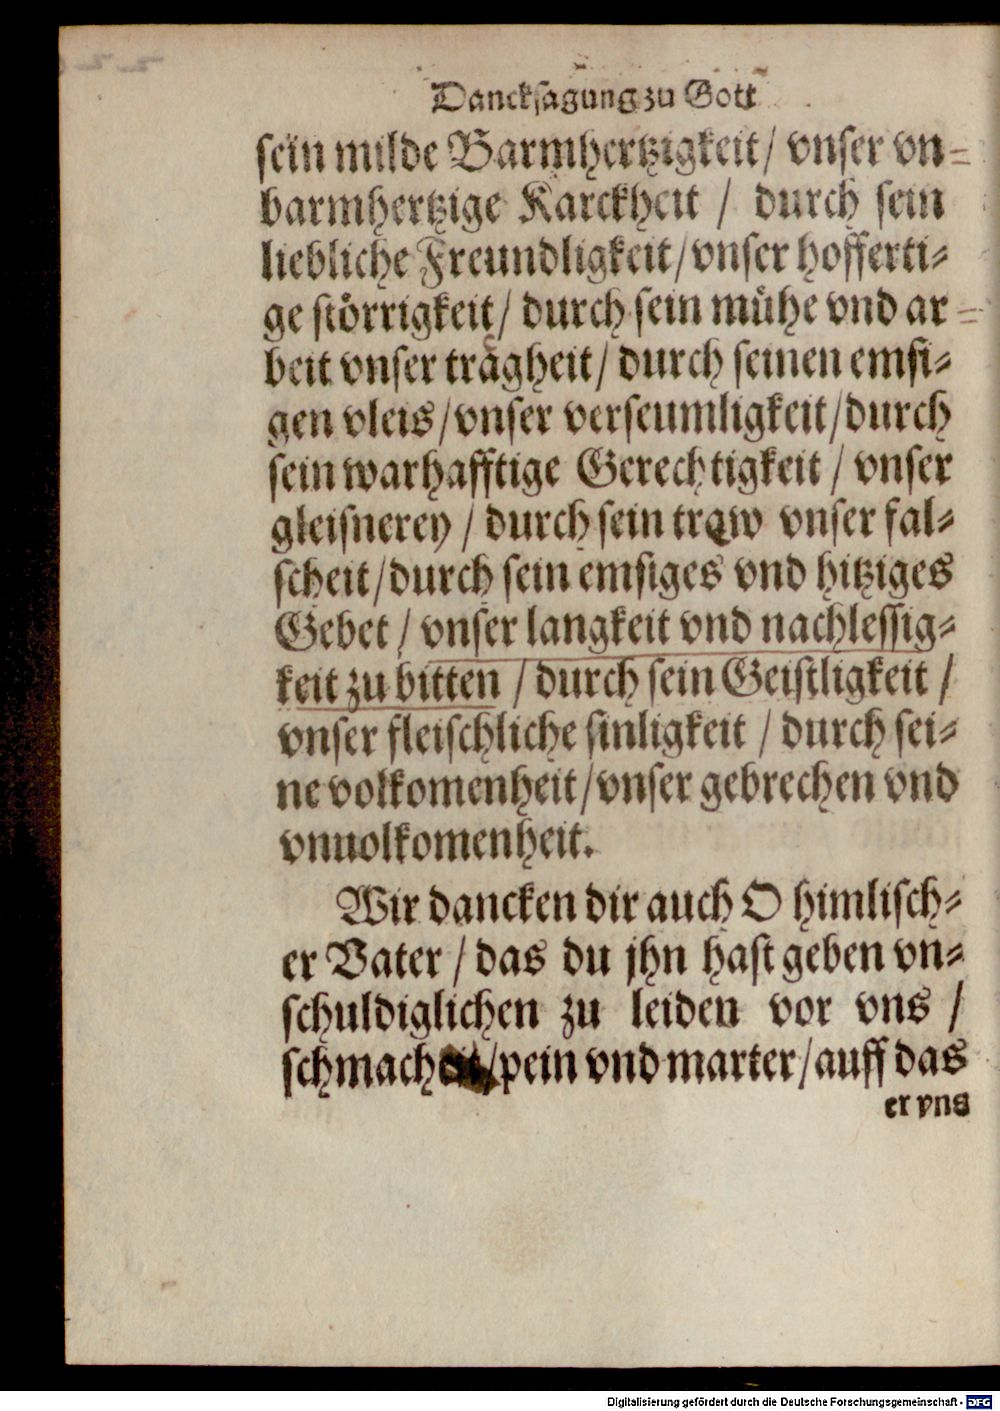 Dancksagung zu Gott
sein milde Barmhertzigkeit/ vnser vn=
barmhertzige Karckheit / durch sein
liebliche Freundligkeit/vnser hofferti=
ge störrigkeit/ durch sein mühe vnd ar=
beit vnser trägheit/ durch seinen emsi=
gen vleis/vnser verseumligkeit/durch
sein warhafftige Gerechtigkeit / vnser
gleisnerey / durch sein traw vnser fal=
scheit/durch sein emsiges vnd hitziges
Gebet / vnser langkeit vnd nachlessig=
keit zu bitten / durch sein Geistligkeit /
vnser fleischliche sinligkeit / durch sei=
ne volkomenheit/vnser gebrechen vnd
vnuolkomenheit.
Wir dancken dir auch O himlisch=
er Vater / das du jhn hast geben vn=
schuldiglichen zu leiden vor vns /
schmacheit/pein vnd marter/auff das
er vns
Digitalisierung gefördert durch die Deutsche Forschungsgemeinschaft - DFG